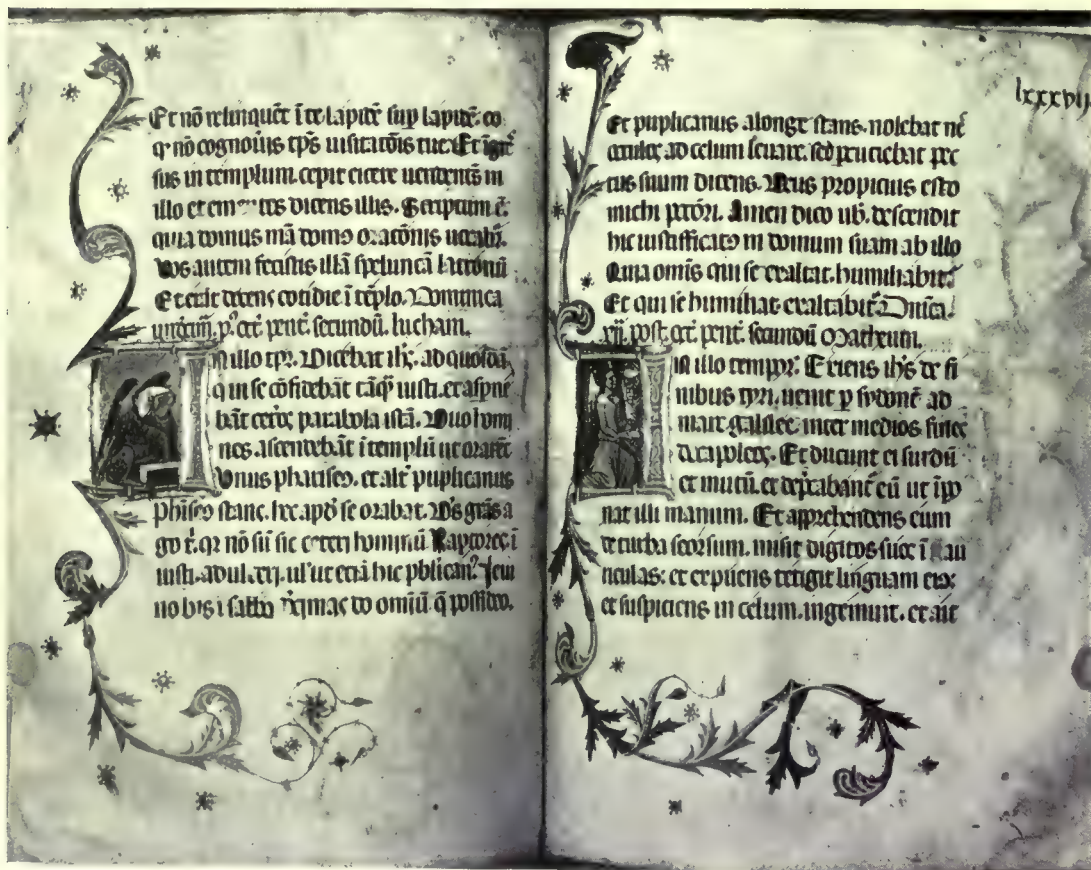 Et nō relinquēt ī te lapidē suꝑ lapidē. eo
qͥ nō cognouis tp̄s uisitatōis tue. Et īgr̄es
sus in templum. cepit eicere uendentes in
illo et em tes dicens illis. Scriptum ē.
quia domus mā domꝰ oratōnis uocabit̄.
Vos autem fecistis illā speluncā latronū
Et erat docens cotidie ī tēplo. Dominica
undecim. p̄. oct̄. pent̄. secundū. lucham.
In illo tp̄r. Dicebat ih̄s. ad quosdā
q in se cōfidebāt tāqͣ iusti. et aspnē
bāt ceteꝝ parabolā istā. Duo homi
nes. ascendebāt ī templū ut orarēt
Vnus phariseꝰ. et alt̄ puplicanus
Phiseꝰ stans. hec apd̓ se orabat. Ds̄ gr̄as a
go t̄. qꝛ nō sū sic ceteri hominū Raptores ī
iusti. adulteri. ul̓ ut eciā hic pblican̄. Jeiu
no bis ī sabbo decimas do omiū q̄ possideo.
lxxxvii
Et puplicanus alonge stans. nolebat nc̄
oculos ad celum leuare. sed percuciebat pec
tus suum dicens. Deus propicius esto
michi pctōri. Amen dico ub̄. descendit
hic iustifficatꝰ in domum suam ab illo
Quia omīs qui se exaltat. humiliabit̄
Et qui se humiliat exaltabit̄ Dnīca.
xij. post. oct̄. pent̄. secundū Matheum.
In illo tempꝛ. Exiens ih̄s de fi
nibus tyri. uenit p sydonē ad
mare galilee. inter medios fines
decapoleos. Et ducunt ei surdū
et mutū. et dep̄cabant̄ eū ut īpo
nat illi manum. Et apprehendens eum
de turba seorsum. misit digitos suos ī au
riculas: et expuens tetigit linguam eiꝰ:
et suspiciens in celum. ingemuit. et ait